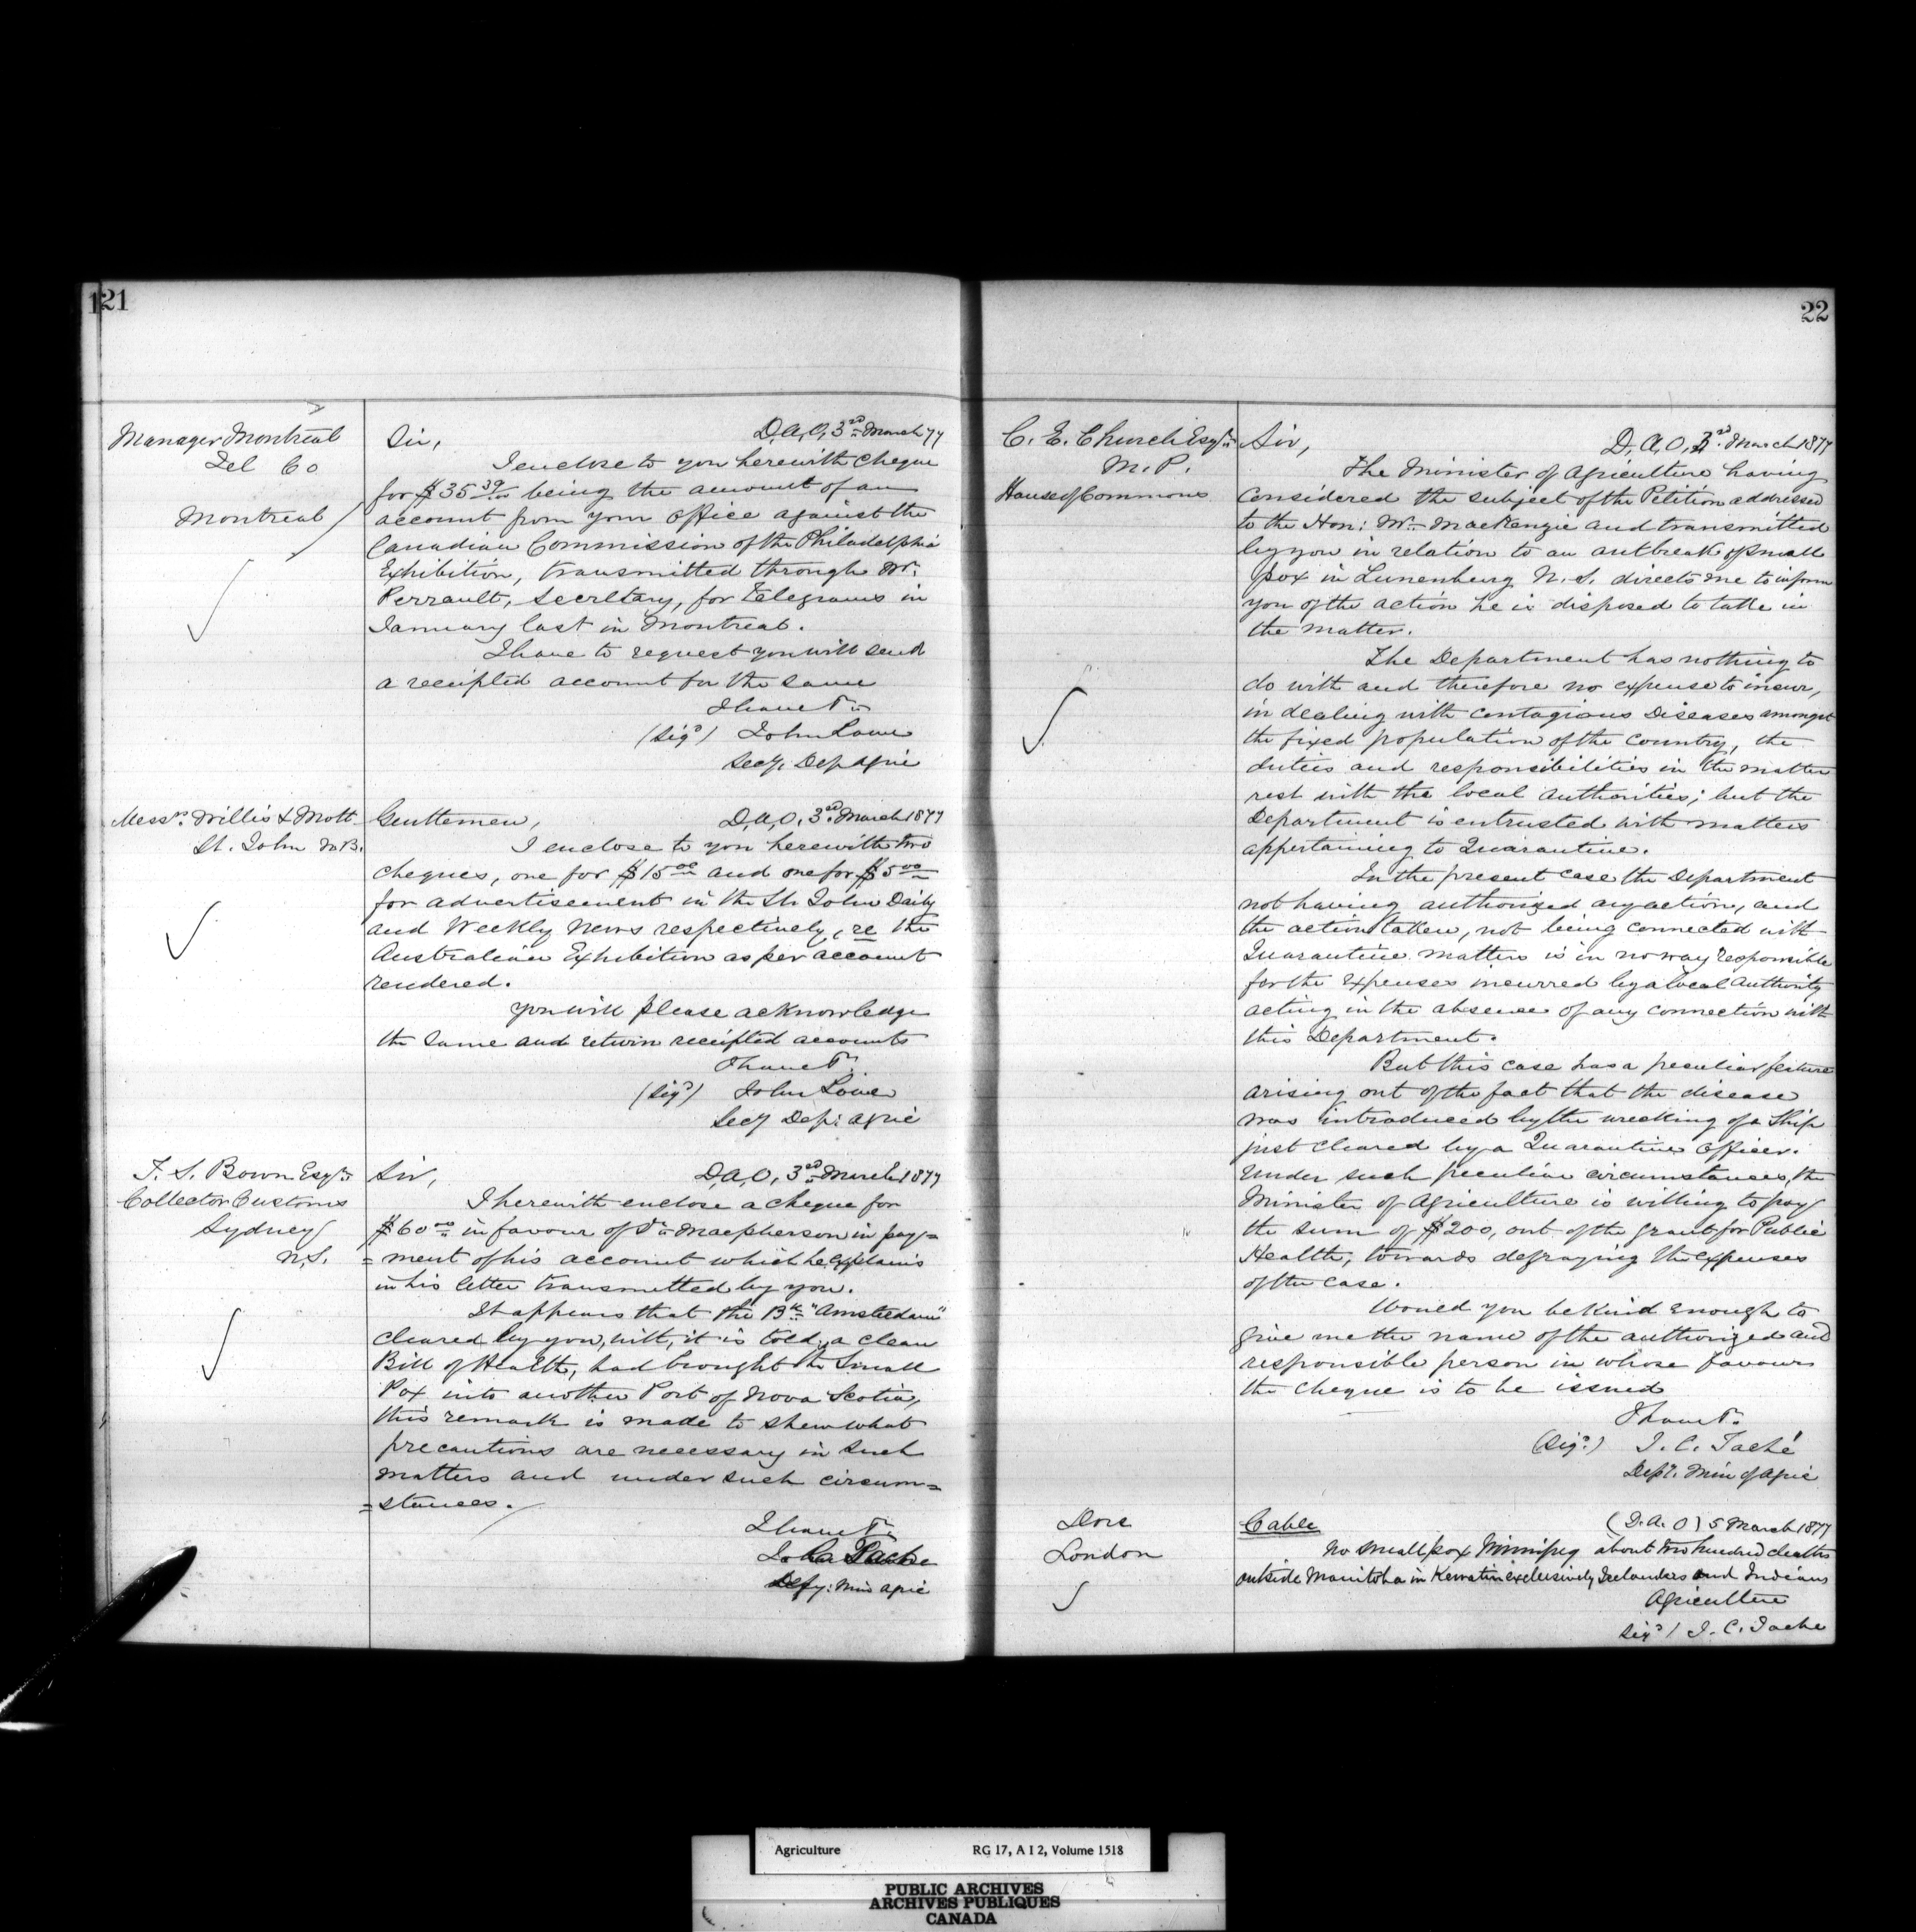 121
Manager Montreal
Tel Co
Montreal
Sir,
D.A.O, 3rd March 77
I enclose to you herewith cheque
for $35 39/100 being the amount of an
account from your office against the
Canadian Commission of the Philadelphia
Exhibition, transmitted through Mr.
Perrault, Secretary, for telegrams in
January last in Montreal.
I have to request you will send
a receipted account for the same
I have &c
(Sigd) John Lowe
Secy, Dep Agric
Messrs. Willis & Mott
St. John N.B.
Gentlemen,
D.A.O, 3rd March 1877
I enclose to you herewith two
cheques, one for $15 00 and one for $5 00
for advertisement in the St. John Daily
and Weekly News respectively, re the
Australian Exhibition as per account
rendered.
You will please acknowledge
the same and return receipted accounts
I have &c.
(Sigd) John Lowe
Secy Dep: Agric
F. S. Bown Esqre
Collector Customs
Sydney
N.S.
Sir,
D.A.O, 3rd March 1877
I herewith enclose a cheque for
$60 00 in favour of Dr Macpherson in pay=
=ment of his account which he explains
in his letter transmitted by you.
It appears that the Bk "Amsteedam"
cleared by you, with, it is told, a clean
Bill of Health, had brought the Small
Pox into another Port of Nova Scotia,
this remark is made to shew what
precautions are necessary in such
matters and under such circum=
=stances.
I have &c
J. C. Tache
Depy: Min Agric
22
C. E. Church Esqre
M.P.
House of Commons
Sir,
D.A.O, 3rd March 1877
The Minister of Agriculture having
considered the subject of the Petition addressed
to the Hon: Mr. MacKenzie and transmitted
by you in relation to an outbreak of small
pox in Lunenburg N.S. directs me to inform
you of the action he is disposed to take in
the matter.
The Department has nothing to
do with and therefore no expense to incur,
in dealing with contagious Diseases amongst
the fixed population of the country, the
duties and responsibilities in the matter
rest with the local authorities; but the
Department is entrusted with matters
appertaining to Quarantine.
In the present case the Department
not having authorized any action, and
the action taken, not being connected with
Quarantine matters is in no way responsible
for the expenses incurred by a local Authority
acting in the absence of any connection with
this Department.
But this case has a peculiar feature
arising out of the fact that the disease
was introduced by the wrecking of a Ship
just cleared by a Quarantine Officer.
Under such peculiar circumstances, the
Minister of Agriculture is willing to pay
the sum of $200, out of the grant for Public
Health, towards defraying the expenses
of the case.
Would you be kind enough to
give me the name of the authorized and
responsible person in whose favour
the cheque is to be issued
I have &c.
(Sigd.) J. C. Taché
Depy. Min of Agric
Dore
London
Cable
(D.A.O) 5 March 1877
No smallpox Winnipeg about two hundred deaths
outside Manitoba in Kewatin exclusively Icelanders and Indians
Agriculture
Sigd / J. C. Tache
Agriculture RG 17, A I 2, Volume 1518
PUBLIC ARCHIVES
ARCHIVES PUBLIQUES
CANADA